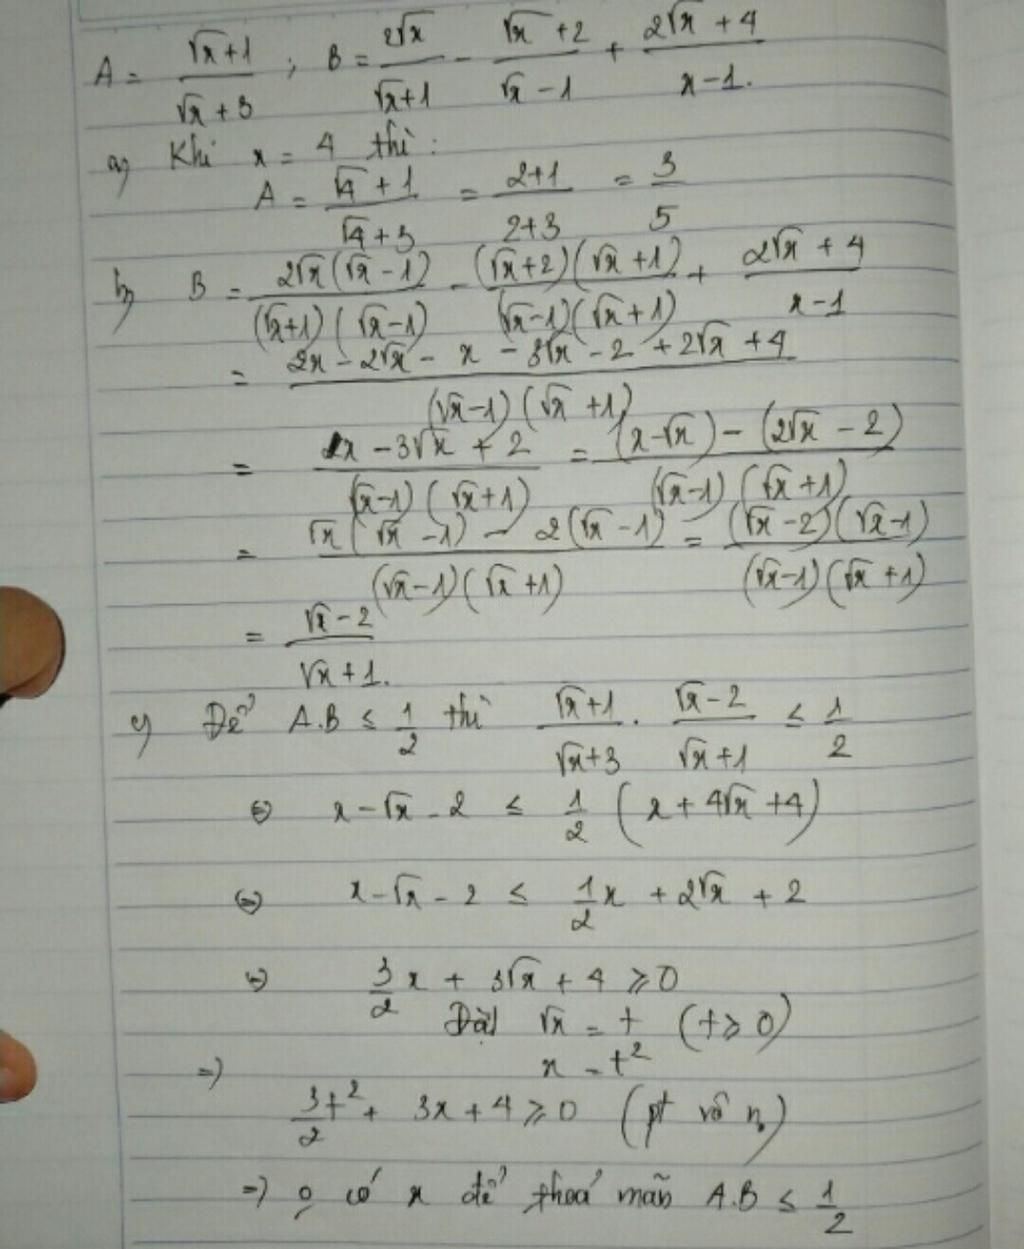 A = (√x + 1)/(√x + 3) ; B = 2√x/(√x + 1) - (√x + 2)/(√x - 1) + (2√x + 4)/(x - 1).
a) Khi x = 4 thì :
A = (√4 + 1)/(√4 + 3) = (2+1)/(2+3) = 3/5
b) B = 2√x(√x - 1)/(√x+1)(√x-1) - (√x+2)(√x+1)/(√x-1)(√x+1) + (2√x + 4)/(x-1)
= (2x - 2√x - x - 3√x - 2 + 2√x + 4)/(√x-1)(√x+1)
= (x - 3√x + 2)/(√x-1)(√x+1) = ((x-√x) - (2√x - 2))/(√x-1)(√x+1)
= (√x(√x-1) - 2(√x-1))/(√x-1)(√x+1) = (√x-2)(√x-1)/(√x-1)(√x+1)
= (√x-2)/(√x+1).
c) Để A.B ≤ 1/2 thì (√x+1)/(√x+3) . (√x-2)/(√x+1) ≤ 1/2
⇔ x - √x - 2 ≤ 1/2 (x + 4√x + 4)
⇔ x - √x - 2 ≤ 1/2x + 2√x + 2
⇔ 3/2x + 3√x + 4 ≥ 0
Đặt √x = t (t ≥ 0)
x = t²
⇒
3t²/2 + 3x + 4 ≥ 0 (pt vô n)
⇒ có x để thoả mãn A.B ≤ 1/2